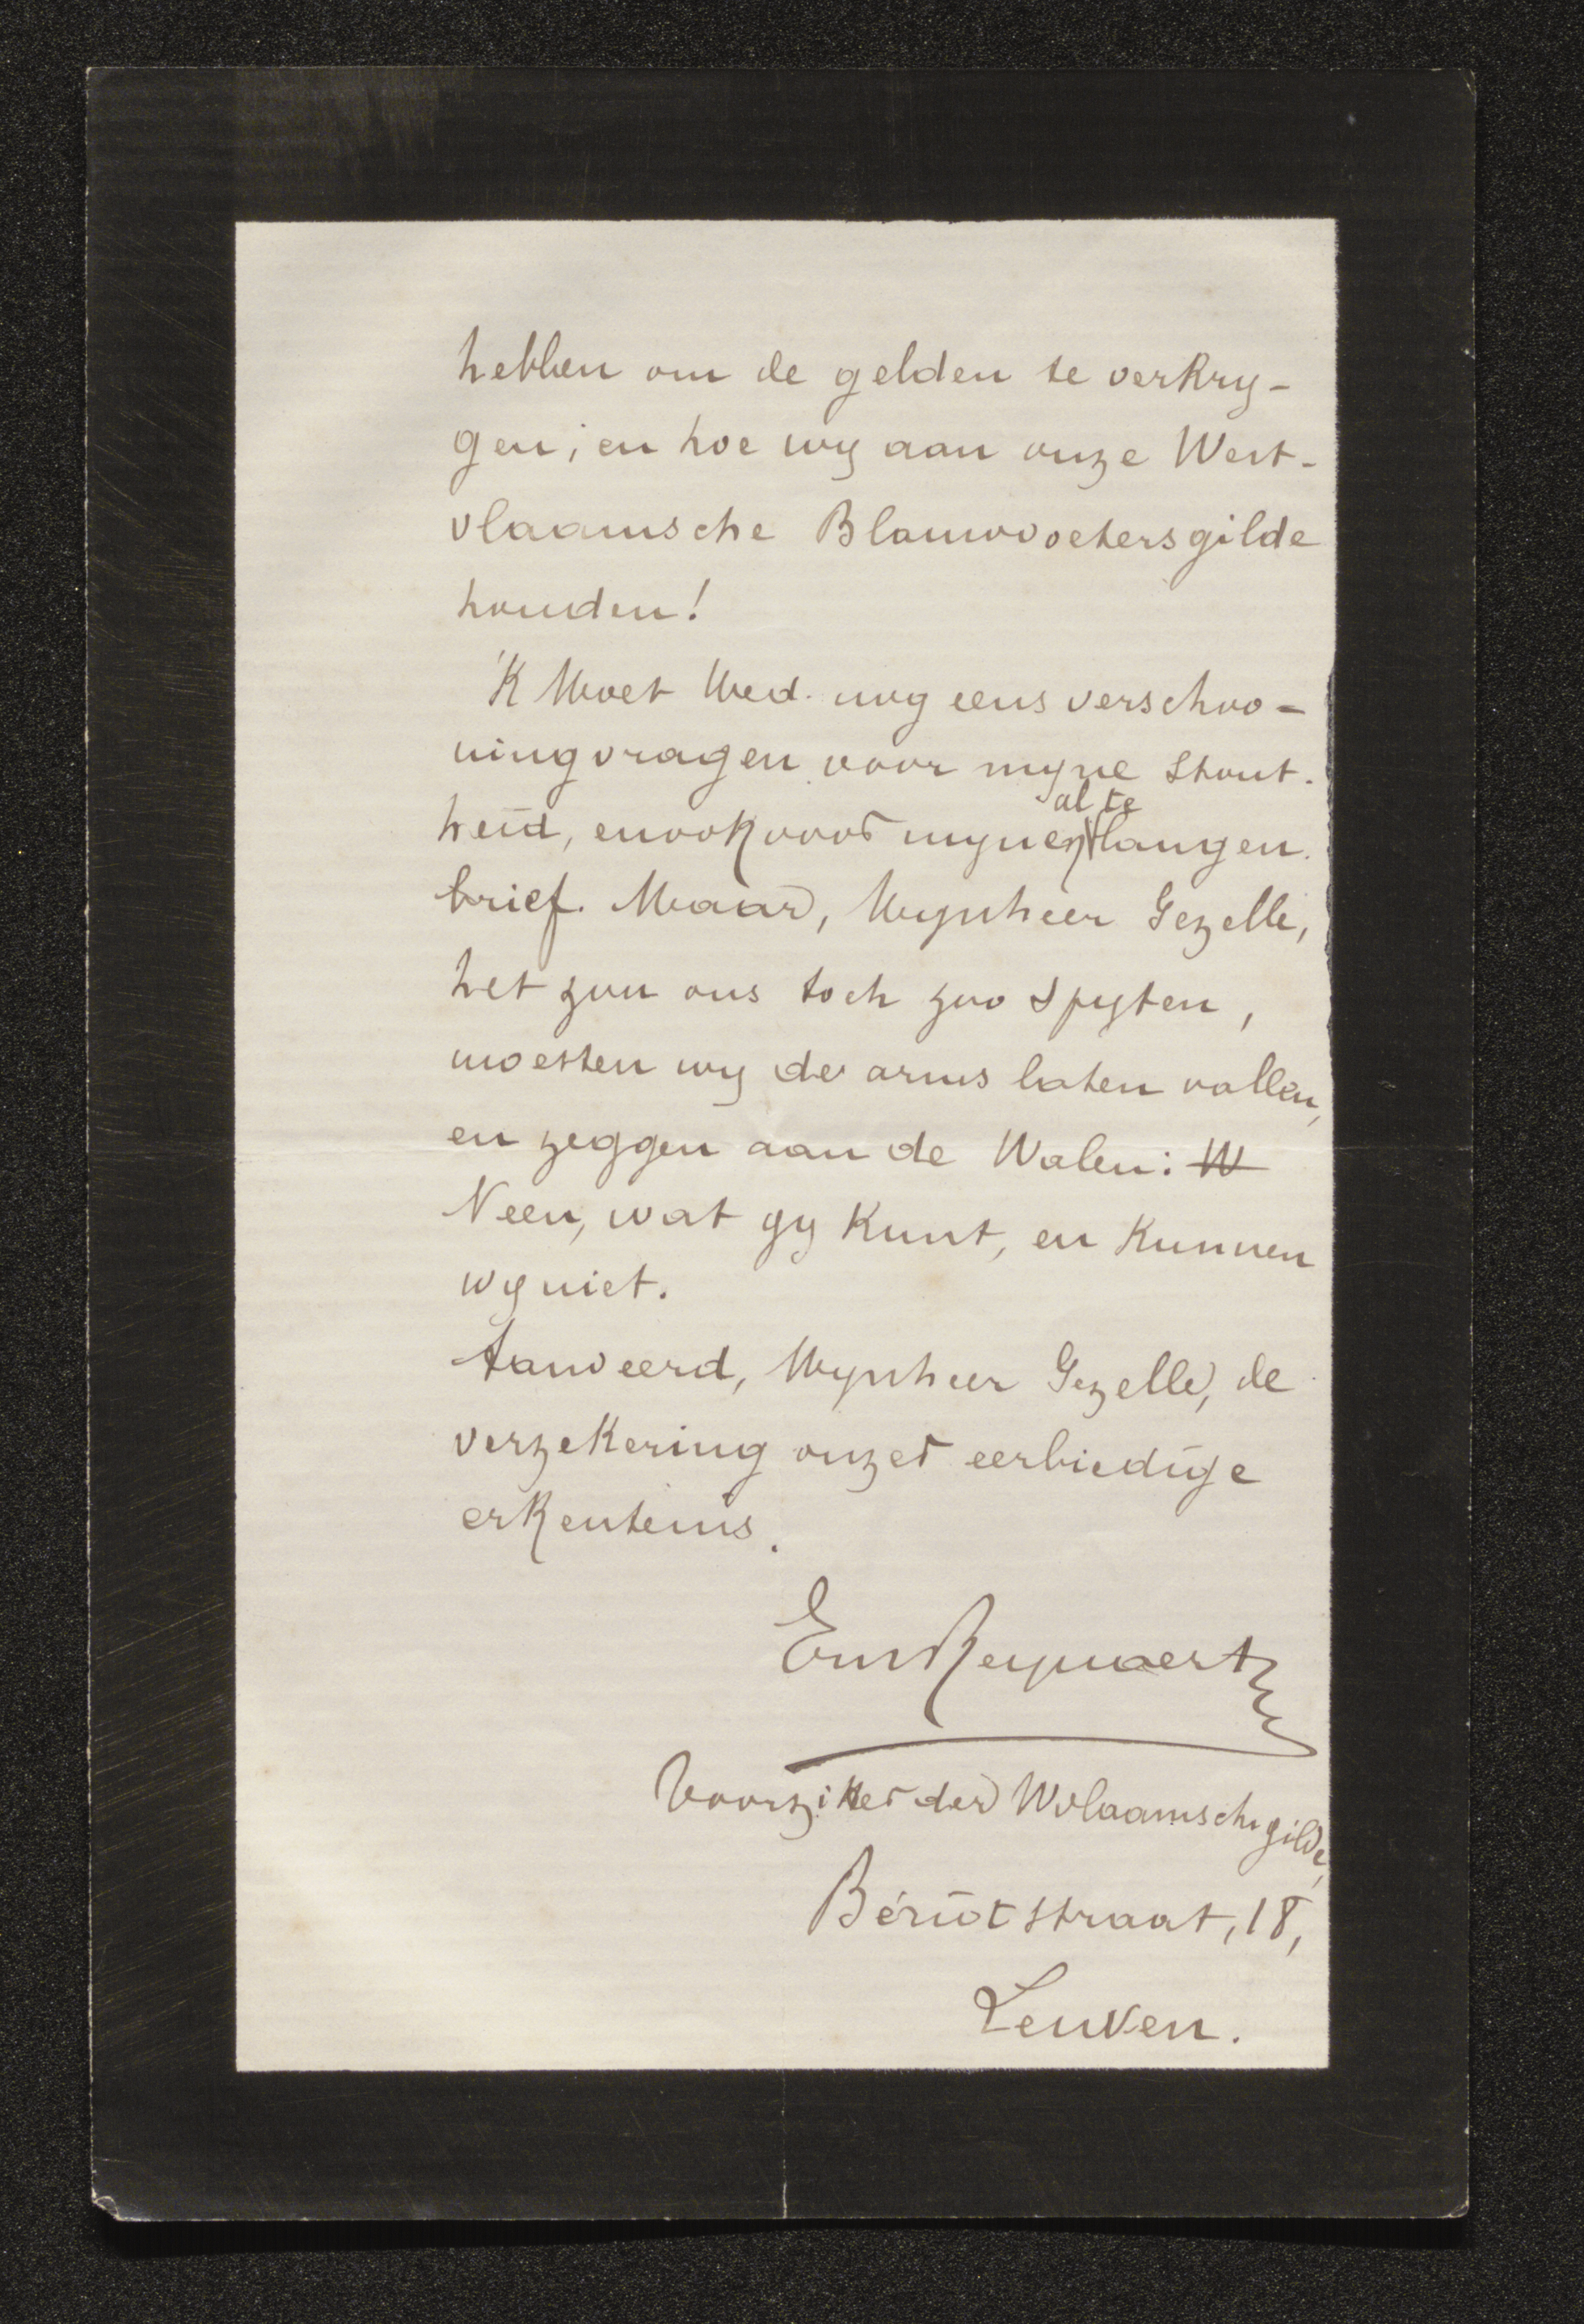 hebben om de gelden te verkry-
gen; en hoe wy aan onze West-
vlaamsche Blauwvoetersgilde
houden!
'K Moet Ued. nog eens verschoo-
ning vragen voor myne stout-
heid, en ook voor mynen al te langen
brief. Maar, Mynheer Gezelle,
het zou ons toch zoo spyten,
moesten wy de arms laten vallen,
en zeggen aan de Walen: W
Neen, wat gy kunt, en kunnen
wy niet.
Aanveerd, Mynheer Gezelle, de
verzekering onzer eerbiedige
erkentenis.
Em Reynaert
Voorzitter der Wvlaamsche gilde,
Bériotstraat, 18,
Leuven.